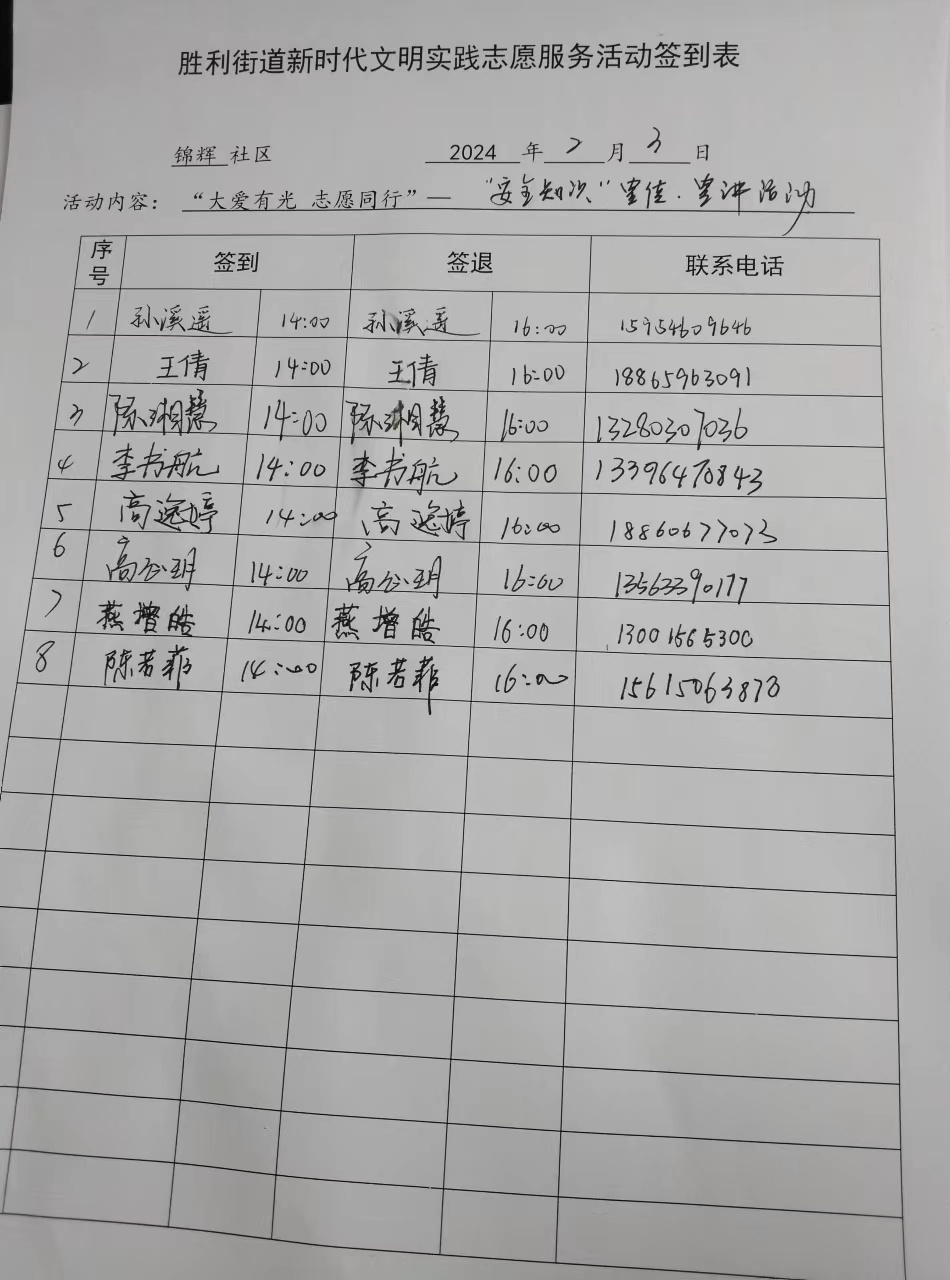 胜利街道新时代文明实践志愿服务活动签到表
锦辉 社区 2024 年 2 月 3 日
活动内容: “大爱有光 志愿同行”— “安全知识”宣传·宣讲活动
序号 签到 签退 联系电话
1 孙溪遥 14:00 孙溪遥 16:00 15954609646
2 王倩 14:00 王倩 16:00 18865963091
3 陈湘慧 14:00 陈湘慧 16:00 13280307036
4 李书航 14:00 李书航 16:00 13396470843
5 高逸婷 14:00 高逸婷 16:00 18860677073
6 高公玥 14:00 高公玥 16:00 13563390177
7 燕增皓 14:00 燕增皓 16:00 13001565300
8 陈若菲 14:00 陈若菲 16:00 15615063873